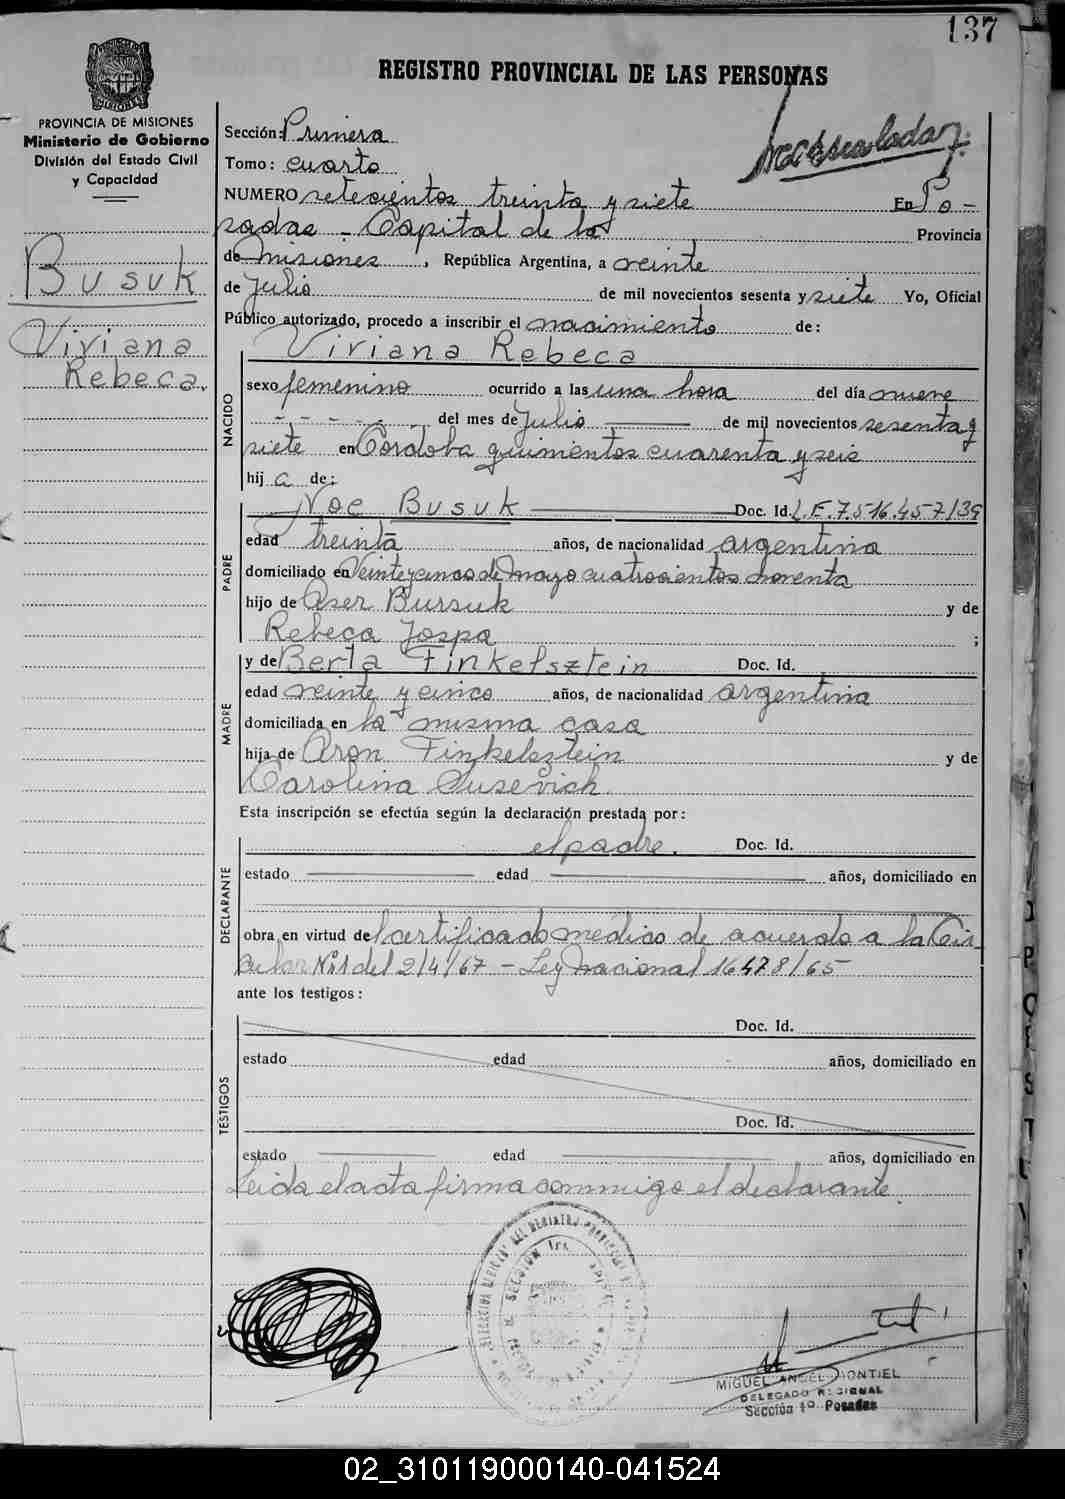 137
REGISTRO PROVINCIAL DE LAS PERSONAS
PROVINCIA DE MISIONES
Ministerio de Gobierno
División del Estado Civil
y Capacidad
Busuk
Viviana
Rebeca.
Sección: Primera
Tomo: cuarto
NUMERO setecientos treinta y siete En Po-
sadas - Capital de la Provincia
de Misiones, República Argentina, a veinte
de Julio de mil novecientos sesenta y siete Yo, Oficial
Público autorizado, procedo a inscribir el nacimiento de:
Viviana Rebeca
NACIDO
sexo femenino ocurrido a las una hora del día nueve
del mes de Julio de mil novecientos sesenta y
siete en Córdoba quinientos cuarenta y seis
hij a de:
Noe Busuk Doc. Id. L.E. 7.516.457/39
PADRE
edad treinta años, de nacionalidad argentina
domiciliado en Veinteycinco de Mayo cuatrocientos noventa
hijo de Aser Bursuk y de
Rebeca Jospa ;
y de Berta Finkelsztein Doc. Id.
MADRE
edad veinte y cinco años, de nacionalidad argentina
domiciliada en la misma casa
hija de Aron Finkelsztein y de
Carolina Susevich.
Esta inscripción se efectúa según la declaración prestada por:
el padre. Doc. Id.
DECLARANTE
estado edad años, domiciliado en
obra en virtud del certificado médico de acuerdo a la Cir-
cular Nº1 del 2/4/67 - Ley Nacional 16478/65
ante los testigos:
Doc. Id.
TESTIGOS
estado edad años, domiciliado en
Doc. Id.
estado edad años, domiciliado en
Leida el acta firma conmigo el declarante.
MIGUEL ANGEL MONTIEL
DELEGADO REGIONAL
Sección 1º Posadas
02_310119000140-041524